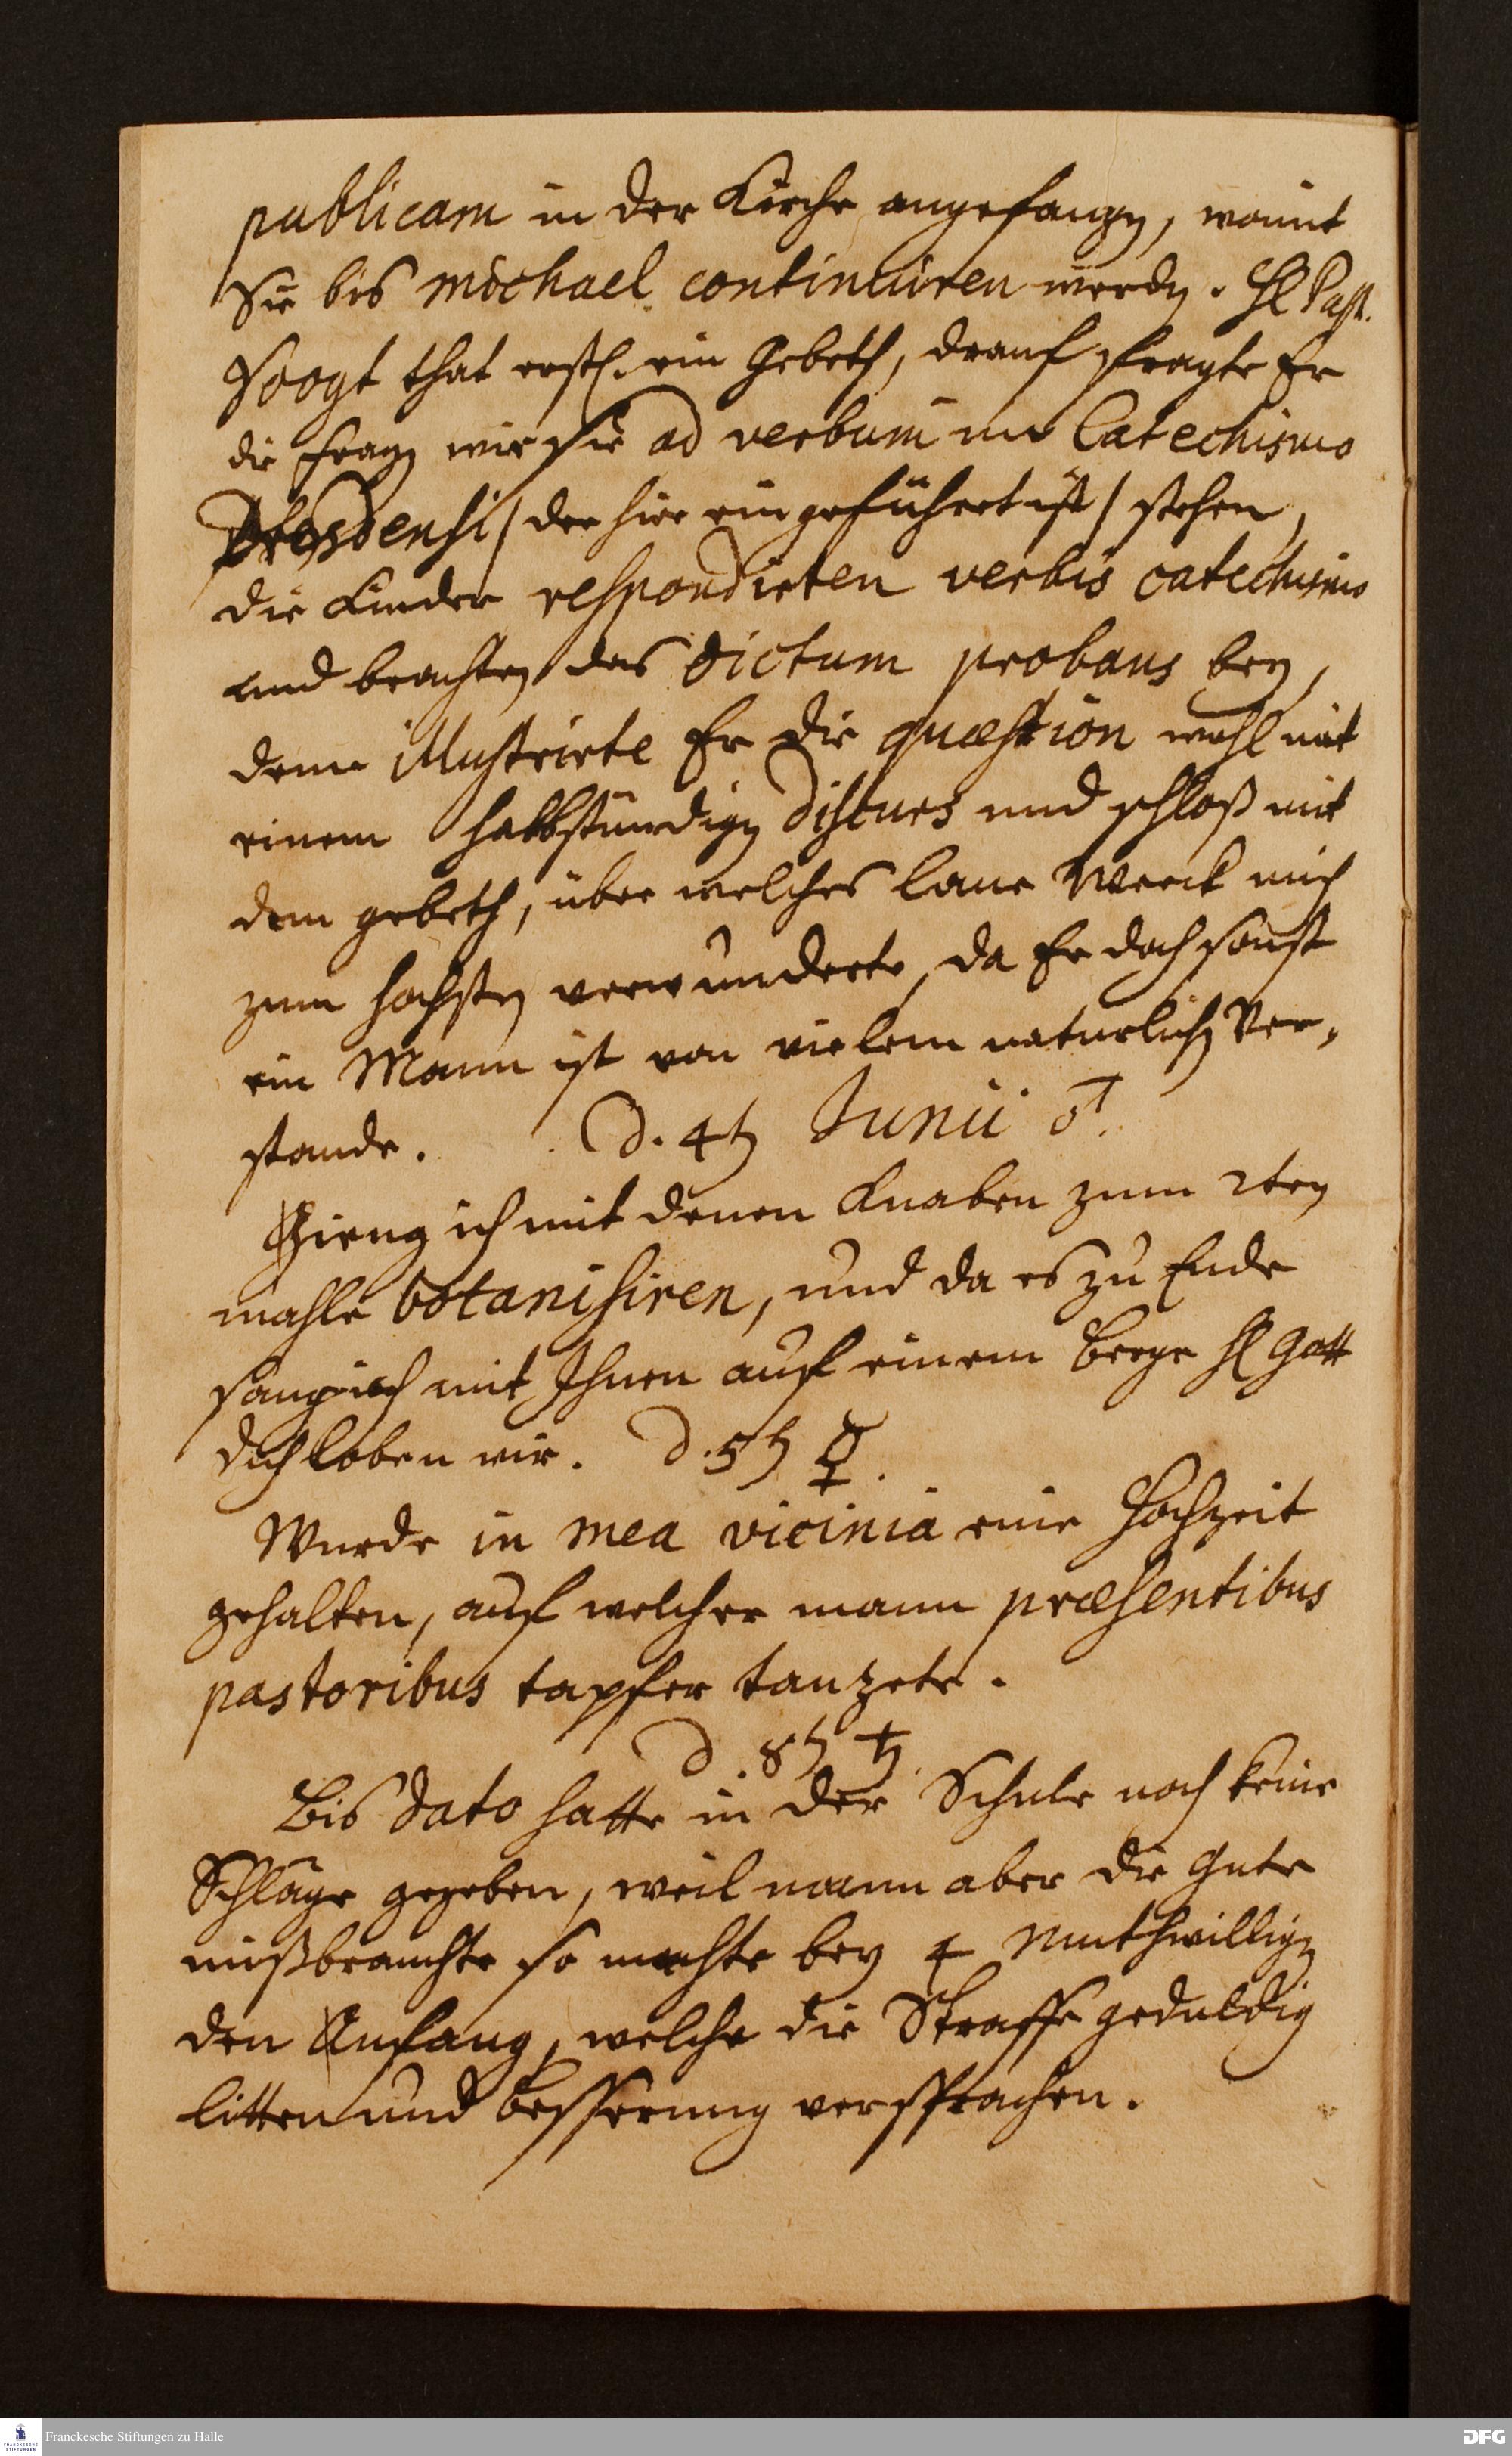 publicam in der Kirche angefangen, womit
Sie bis michael continuiren werden. H. Past.
Voogt that erstl. ein Gebeth, drauf fragte Er
die Fragen wie sie ad verbum im Catechismo
Dresdensi / der hier eingeführet ist / stehen,
die Kinder respondirten verbis catechismo
und brachten das dictum probans bey,
denn illustrirte Er die quæstion wohl mit
einem halbstündigen discurs und schloß mit
dem gebeth, über welches laue Werck mich
zum hochsten verwunderte, da Er doch sonst
ein Mann ist von vielem naturlichen Ver-
stande. d. 4ten Junii ♂.
Gieng ich mit denen Knaben zum 2ten
mahle botanisiren, und da es zu Ende
sang ich mit Ihnen auf einem Berge H. Gott
dich loben wir. d. 5ten ☿.
Wurde in mea vicinia eine Hochzeit
gehalten, auf welcher mann præsentibus
pastoribus tapfer tanzete.
d. 8ten ♄.
Bis dato hatte in der Schule noch keine
Schläge gegeben, weil mann aber die Gute
mißbrauchte so machte bey 4 Muthwilligen
den Anfang, welche die Straffe geduldig
litten und Besserung versprachen.
Franckesche Stiftungen zu Halle
DFG